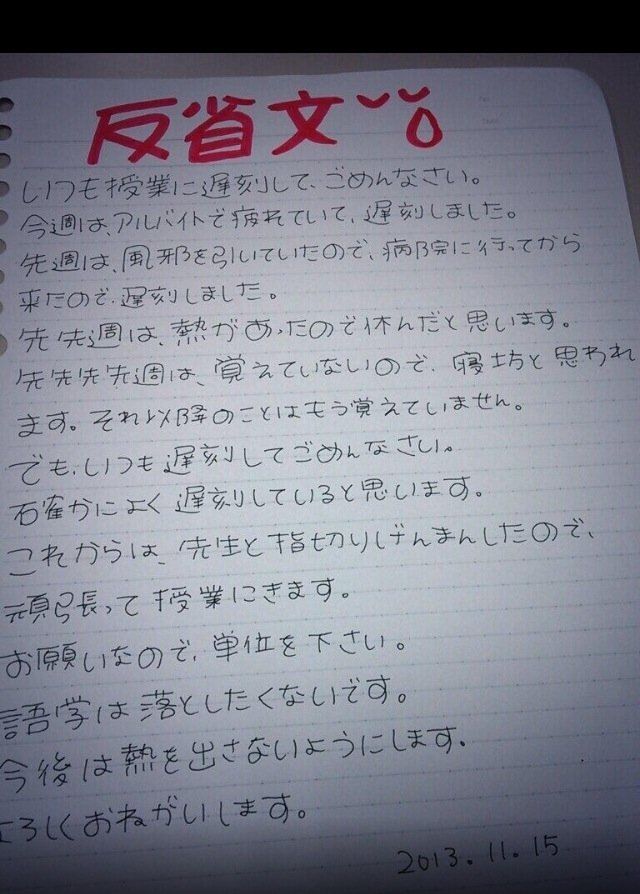 反省文
いつも授業に遅刻して、ごめんなさい。
今週は、アルバイトで疲れていて、遅刻しました。
先週は、風邪を引いていたので、病院に行ってから
来たので、遅刻しました。
先先週は、熱があったので休んだと思います。
先先先先週は、覚えていないので、寝坊と思われ
ます。それ以降のことはもう覚えていません。
でも、いつも遅刻してごめんなさい。
確かによく遅刻していると思います。
これからは、先生と指切りげんまんしたので、
頑張って授業にきます。
お願いなので、単位を下さい。
語学は落としたくないです。
今後は熱を出さないようにします。
よろしくおねがいします。
2013.11.15